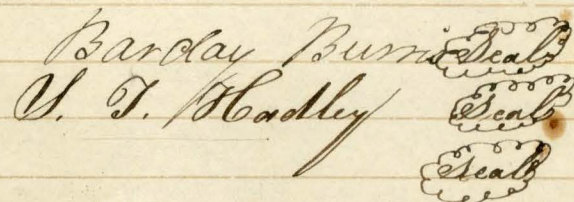 Barclay Burris Seal
S. T. Hadley Seal
Seal